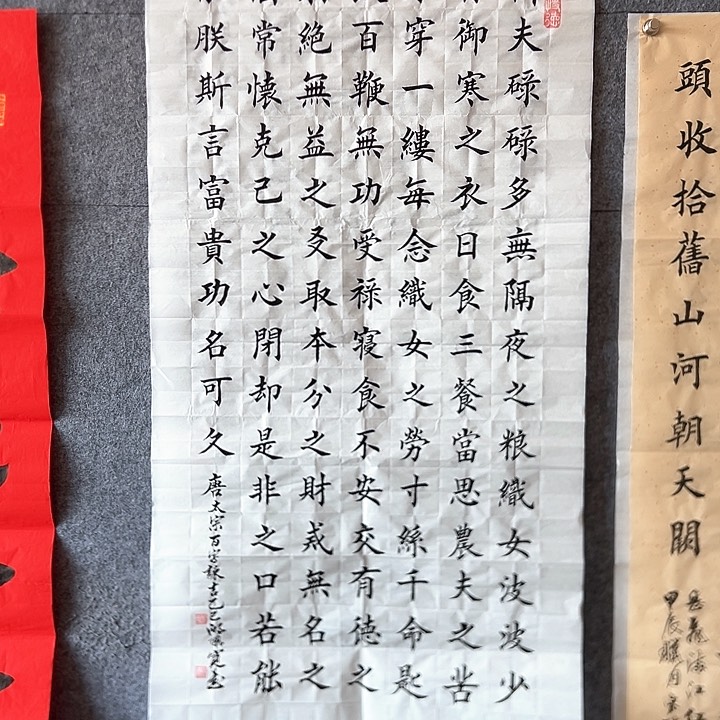 頭收拾舊山河朝天闕
岳飛滿江紅
甲辰臘月
夫碌碌多無隔夜之粮織女波波少
御寒之衣日食三餐當思農夫之苦
穿一縷每念織女之勞寸絲千命匙
百鞭無功受禄寝食不安交有德之
絕無益之友取本分之財戒無名之
常懷克己之心閉却是非之口若能
朕斯言富貴功名可久
唐太宗百字箴言乙巳